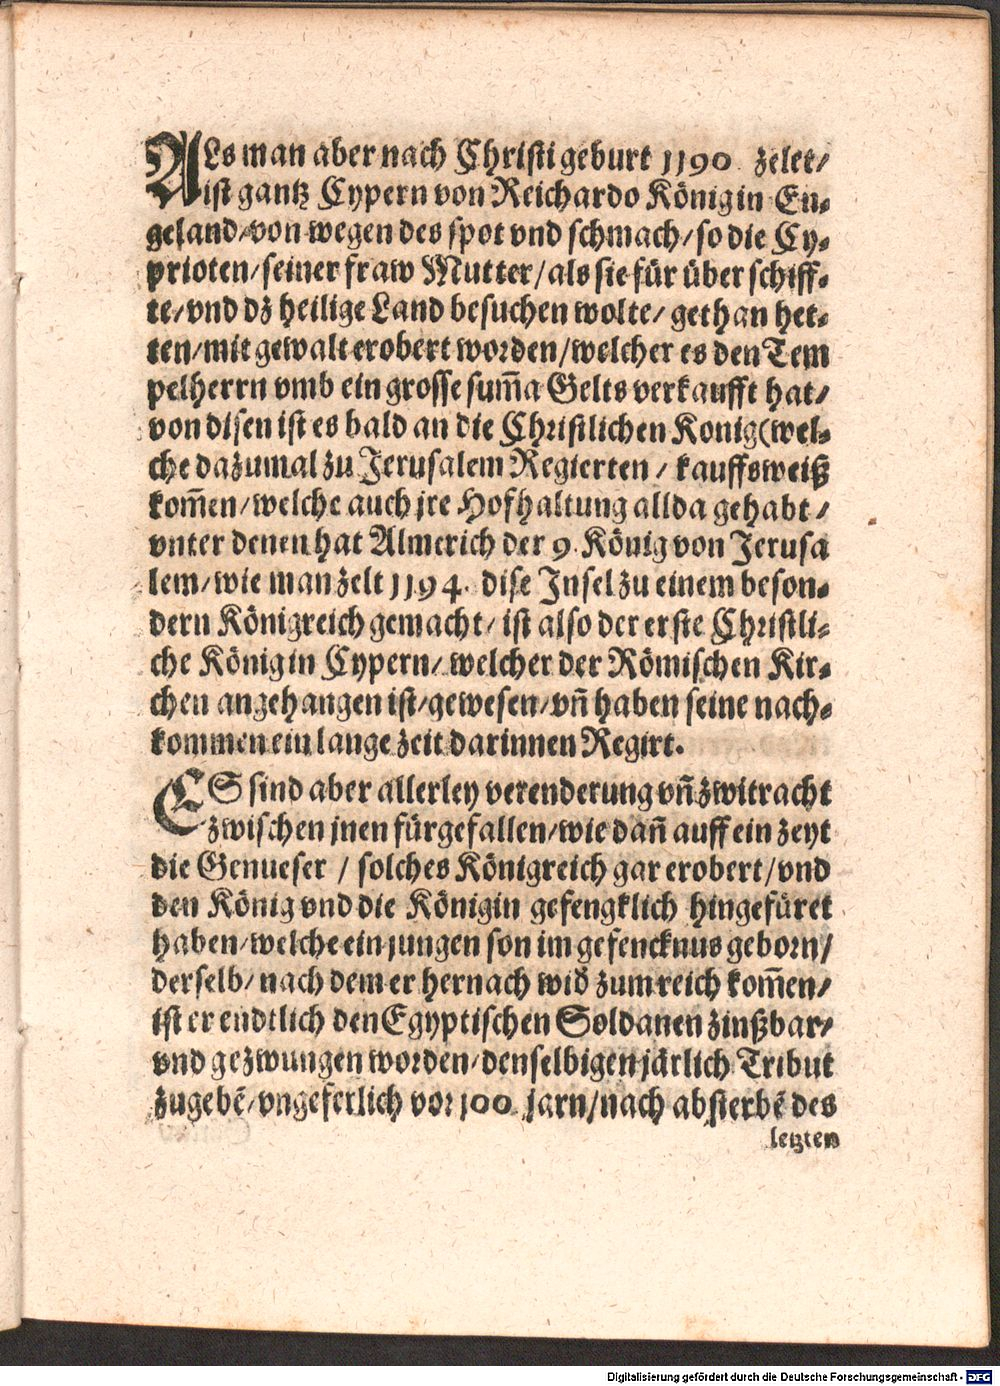 ALs man aber nach Christi geburt 1190. zelet/
ist gantz Cypern von Reichardo König in En-
geland/von wegen des spot vnd schmach/so die Cy-
prioten/seiner fraw Mutter/als sie für über schiff-
te/vnd dz heilige Land besuchen wolte/ gethan het-
ten/mit gewalt erobert worden/welcher es den Tem
pelherrn vmb ein grosse sum̄a Gelts verkaufft hat/
von disen ist es bald an die Christlichen Konig(wel-
che dazumal zu Jerusalem Regierten / kauffsweiß
kom̄en/welche auch jre Hofhaltung allda gehabt /
vnter denen hat Almerich der 9. König von Jerusa
lem/wie man zelt 1194. dise Insel zu einem beson-
dern Königreich gemacht/ ist also der erste Christli-
che König in Cypern/ welcher der Römischen Kir-
chen angehangen ist/gewesen/vn̄ haben seine nach-
kommen ein lange zeit darinnen Regirt.
ES sind aber allerley verenderung vn̄ zwitracht
zwischen jnen fürgefallen/wie dan̄ auff ein zeyt
die Genueser / solches Königreich gar erobert/vnd
den König vnd die Königin gefengklich hingefüret
haben/welche ein jungen son im gefencknus geborn/
derselb/ nach dem er hernach wid̄ zum reich kom̄en/
ist er endtlich den Egyptischen Soldanen zinßbar/
vnd gezwungen worden/denselbigen järlich Tribut
zugebē/vngeferlich vor 100. jarn/nach absterbē des
letzten
Digitalisierung gefördert durch die Deutsche Forschungsgemeinschaft - DFG